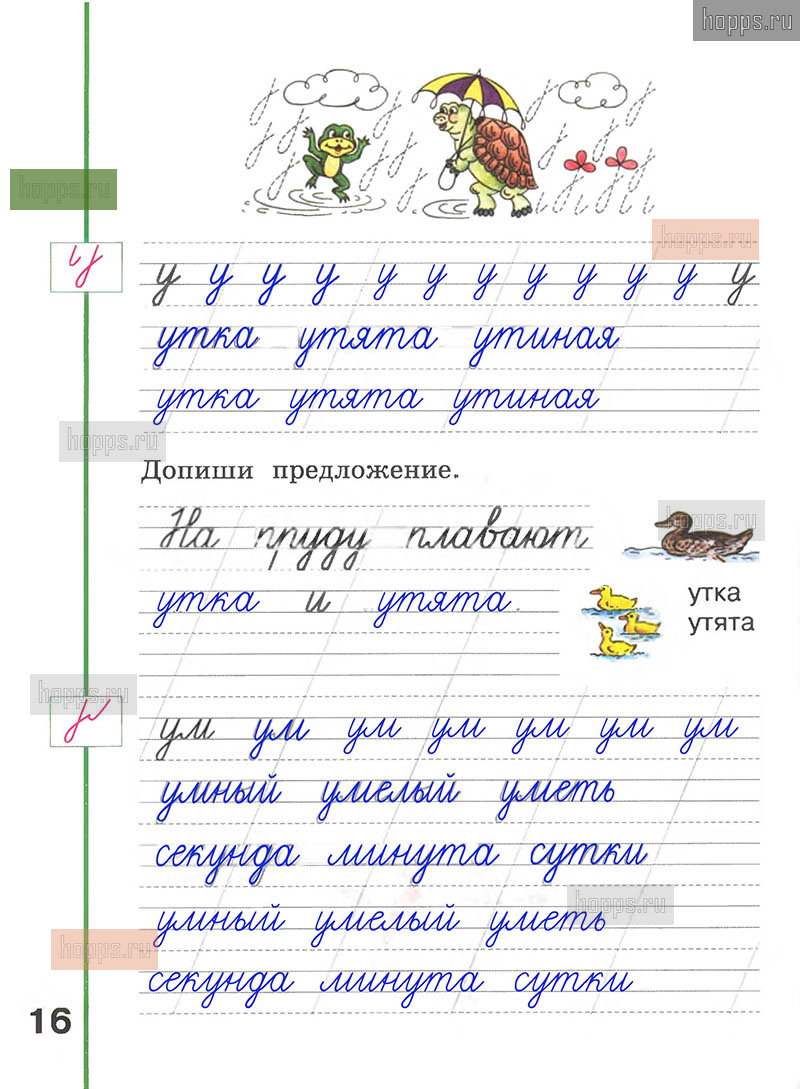 hopps.ru
hopps.ru
hopps.ru
у
у у у у у у у у у у у у
утка утята утиная
утка утята утиная
hopps.ru
Допиши предложение.
На пруду плавают
hopps.ru
утка и утята.
утка
утята
hopps.ru
ум ум ум ум ум ум ум
умный умелый уметь
секунда минута сутки
hopps.ru
умный умелый уметь
hopps.ru
секунда минута сутки
16